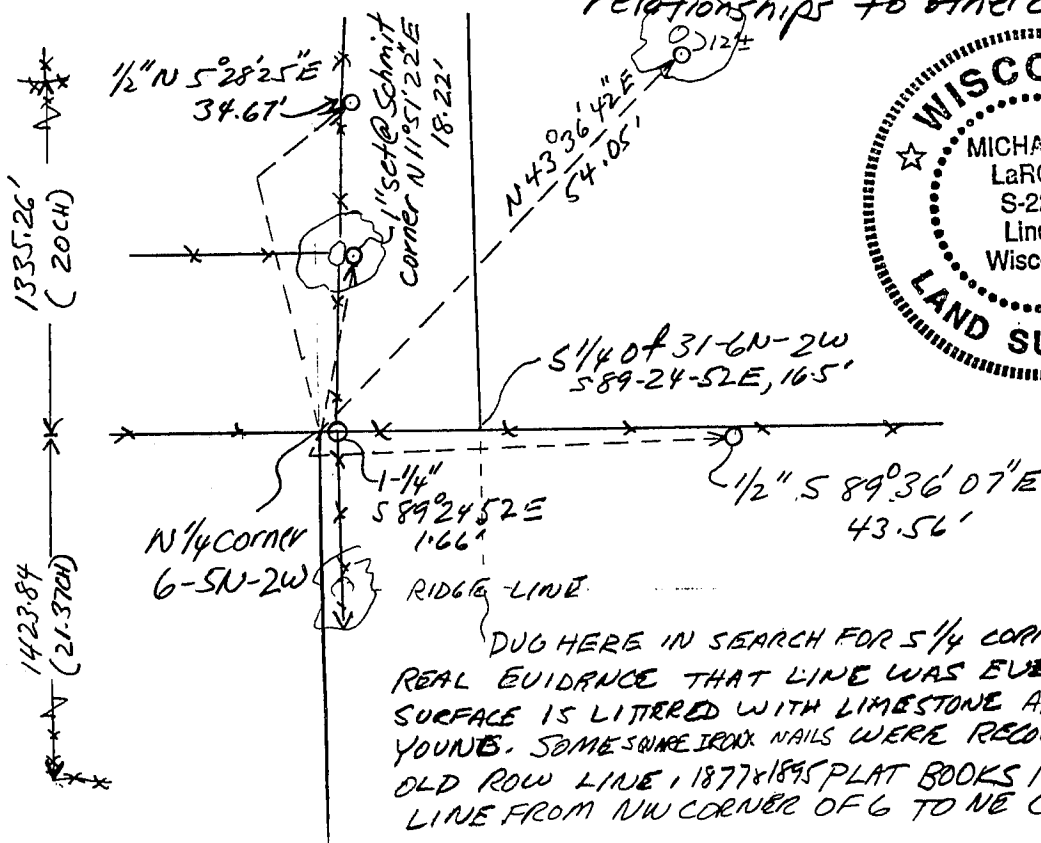 relationships to other c
1/2" N 5°28'25"E
34.67'
1" set @ Schmit
corner N 11°51'22"E
18.22'
12"±
N 43°36'42"E
54.05'
WISCO
MICHA
LaRO
S-22
Line
Wisco
LAND SU
1335.26'
(20CH)
S 1/4 Of 31-6N-2W
S89-24-52E, 16.5'
1-1/4"
S 89°24'52 E
1.66'
1/2" S 89°36'07"E
43.56'
N 1/4 corner
6-5N-2W
1423.84
(21.37CH)
RIDGE LINE
DUG HERE IN SEARCH FOR S 1/4 CORN
REAL EVIDENCE THAT LINE WAS EVE
SURFACE IS LITTERED WITH LIMESTONE A
YOUNG. SOME SQUARE IRON NAILS WERE RECO
OLD ROW LINE, 1877&1895 PLAT BOOKS I
LINE FROM NW CORNER OF 6 TO NE C